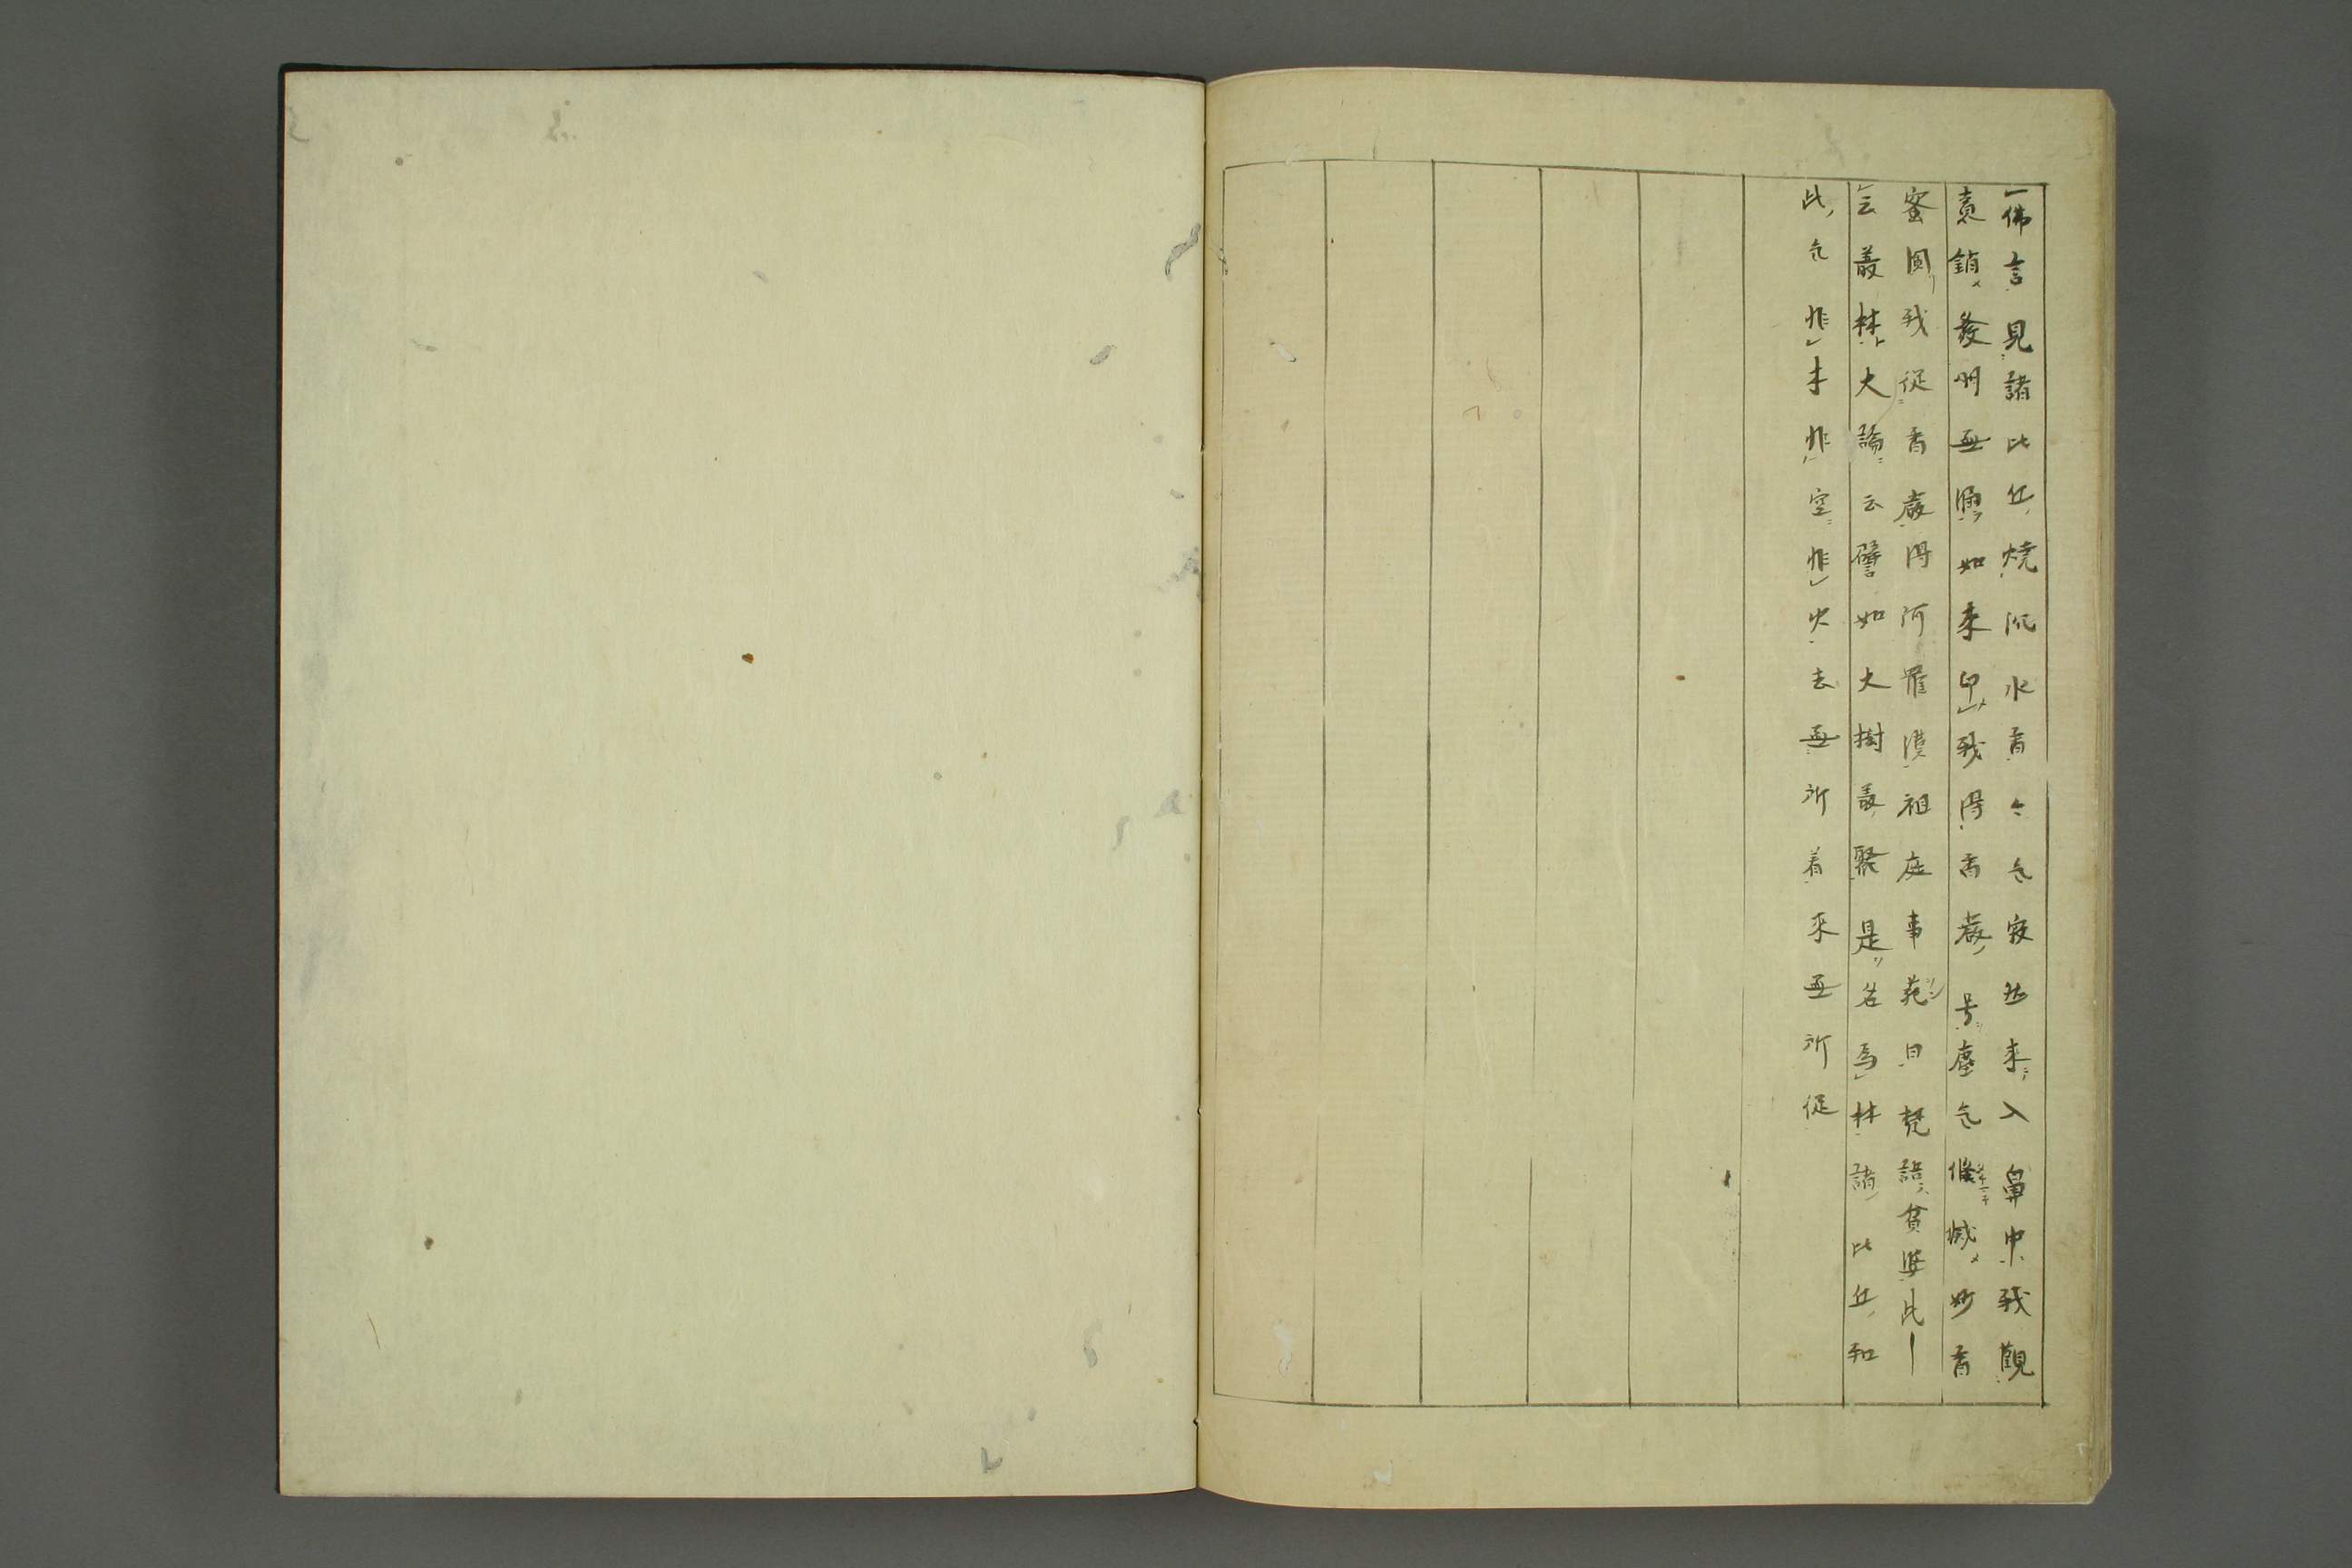 佛言見諸比丘燒沉水香々气寂然来入鼻中我觀
意銷發明無漏如来印我得香嚴号塵气倐滅妙香
密圓我從香嚴得阿羅漢祖庭事苑曰梵語貧婆此―
云叢林大論云譬如大樹叢聚是名為林諸比丘和
此气非木非空非火去無所着来無所從